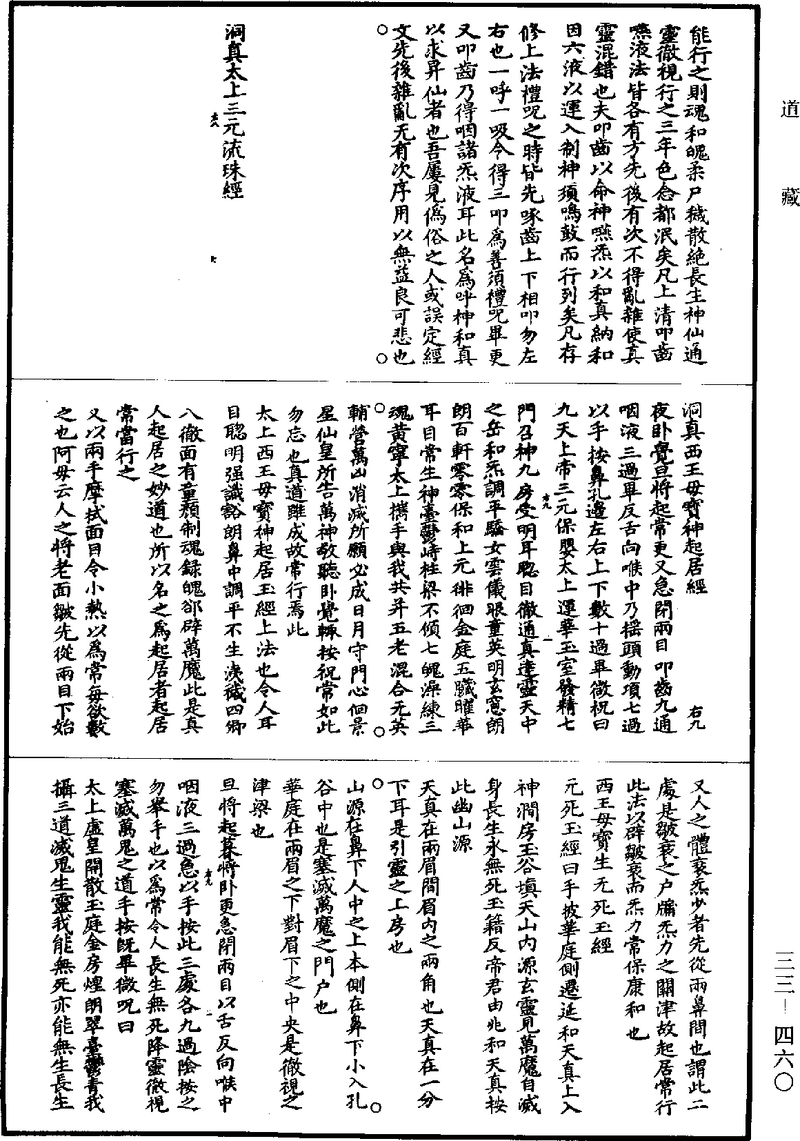 道藏
能行之則魂和魄柔尸穢散絶長生神仙通
靈徹視行之三年色念都泯矣凡上清叩齒
嚥液法皆各有方先後有次不得亂雜使真
靈混錯也夫叩齒以命神嚥炁以和真納和
因六液以運入制神須鳴鼓而行列矣凡存
修上法禮呪之時皆先啄齒上下相叩勿左
右也一呼一吸令得三叩爲善須禮呪畢更
又叩齒乃得咽諸炁液耳此名爲呼神和真
以求昇仙者也吾屢見僞俗之人或誤定經
文先後雜亂无有次序用以無益良可悲也
洞真太上三元流珠經
洞真西王母寶神起居經 右九
夜卧覺旦將起常更又急閉兩目叩齒九通
咽液三過畢反舌向喉中乃摇頭動項七過
以手按鼻孔邊左右上下數十過畢微祝曰
九天上帝三元保嬰太上運華玉室發精七
門召神九房受明耳聡目徹通真達靈天中
之岳和炁調平驅女雲儀眼童英明玄窓朗
朗百軒零零保和上元徘徊金庭五臟曜華
耳目常生神臺鬱峙柱梁不傾七魄澡練三
魂黄寧太上攜手與我共并五老混合无英
輔營萬凶消滅所願必成日月守門心佪景
星仙皇所告萬神敬聽卧覺輙按祝常如此
勿忘也真道雖成故常行焉此
太上西王母寶神起居玉經上法也令人耳
目聡明强識豁朗鼻中調平不生洟穢四鄉
八徹面有童顏制魂録魄郤辟萬魔此是真
人起居之妙道也所以名之爲起居者起居
常當行之
又以兩手摩拭面目令小熱以爲常每欲數
之也阿母云人之將老面皺先從兩目下始
又人之體衰炁少者先從兩鼻間也謂此二
處是皺衰之户牖炁力之關津故起居常行
此法以辟皺衰而炁力常保康和也
西王母寶生无死玉經
元死玉經曰手披華庭側遏延和天真上入
神澗房玉谷填天山内源玄靈見萬魔自滅
身長生永無死玉籍反帝君由兆和天真按
此幽山源
天真在兩眉間眉内之兩角也天真在一分
下耳是引靈之上房也
山源在鼻下人中之上本側在鼻下小入孔
谷中也是塞滅萬魔之門户也
華庭在兩眉之下對眉下之中央是徹視之
津梁也
旦將起暮將卧更急閉兩目以舌反向喉中
咽液三過急以手按此三處各九過陰按之
勿舉手也以爲常令人長生無死降靈徹視
塞滅萬鬼之道手按旣畢微呪曰
太上虛皇開散玉庭金房煌朗翠臺鬱青我
攝三道滅鬼生靈我能無死亦能無生長生
三三—四六〇